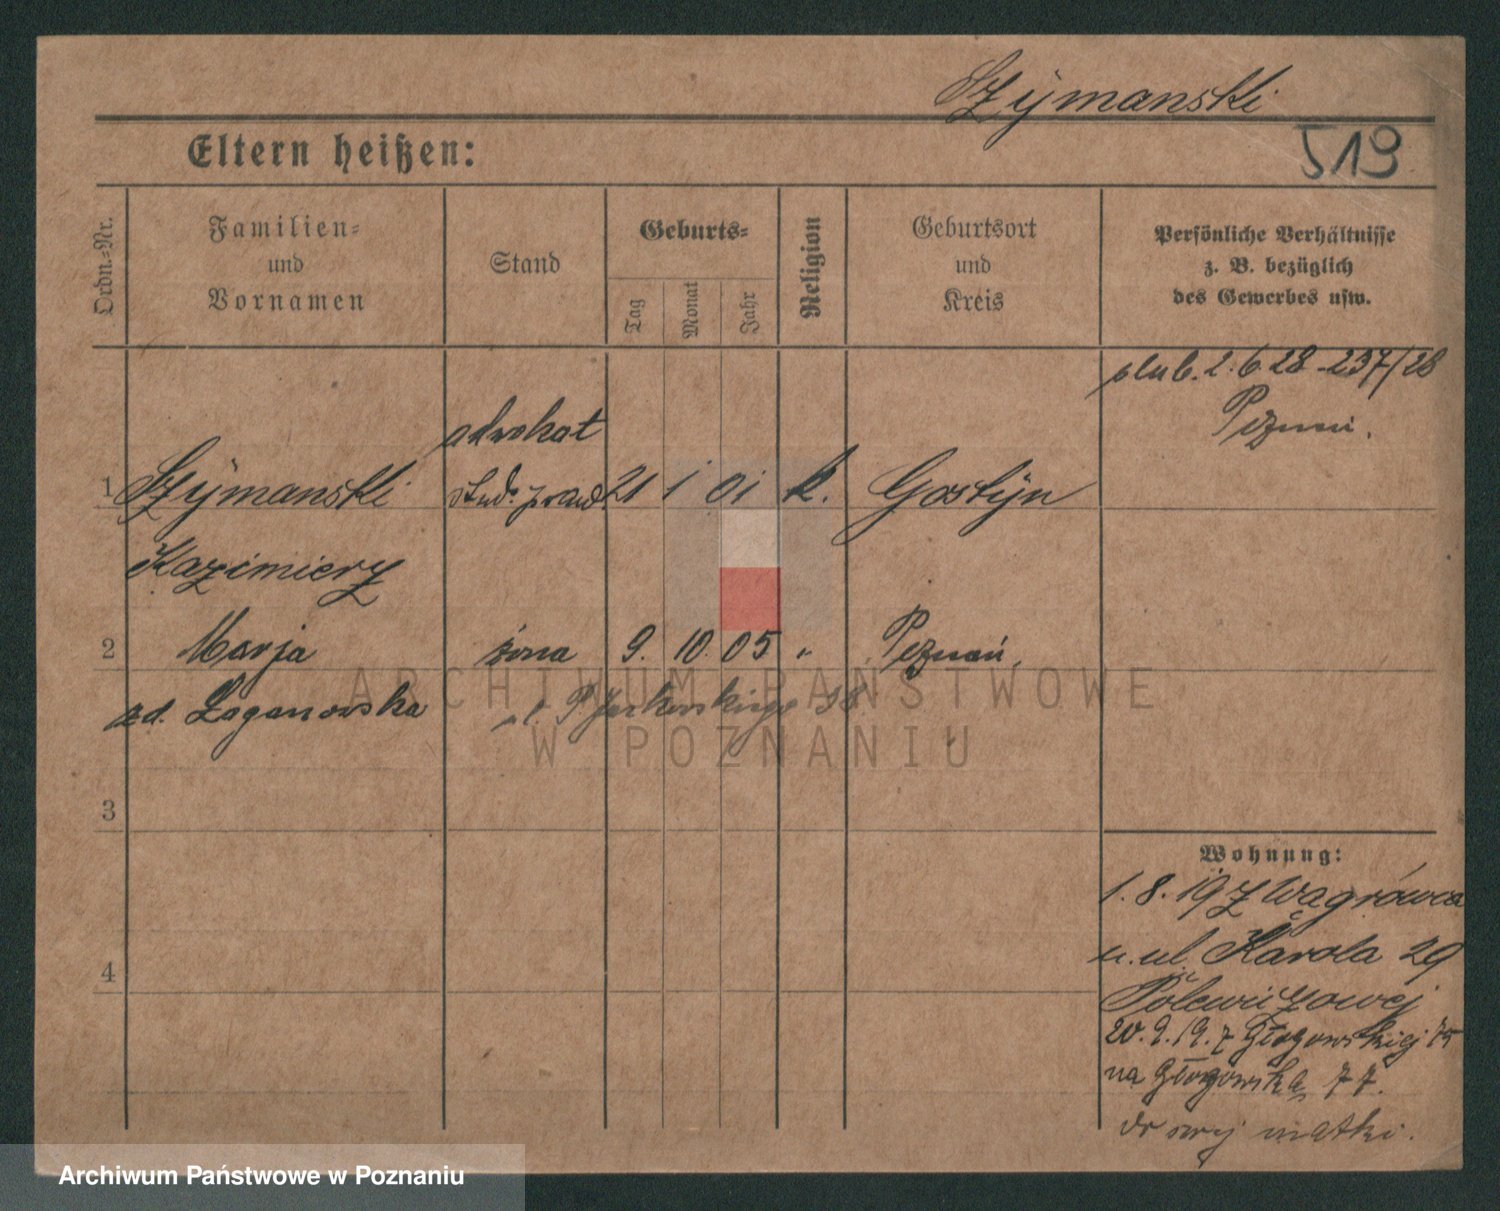 Szymanski
519
Eltern heißen:
Ordn.-Nr.
Familien-
und
Vornamen
Stand
Geburts-
Tag
Monat
Jahr
Religion
Geburtsort
und
Kreis
Persönliche Verhältnisse
z. B. bezüglich
des Gewerbes usw.
ślub. 2. 6. 28 - 237/28
Poznań.
adwokat
1 Szymanski stud. praw. 21 1 01 k. Gostyn
Kazimierz
2 Marja żona 9. 10. 05 " Poznań.
zd. Łaganowska
3
4
Wohnung:
1. 8. 19 z Wągrówca
n. ul. Karola 29
20. 9. 19. z Głogowskiej 75
na Głogowską 77.
do swej matki.
ARCHIWUM PAŃSTWOWE
W POZNANIU
Archiwum Państwowe w Poznaniu